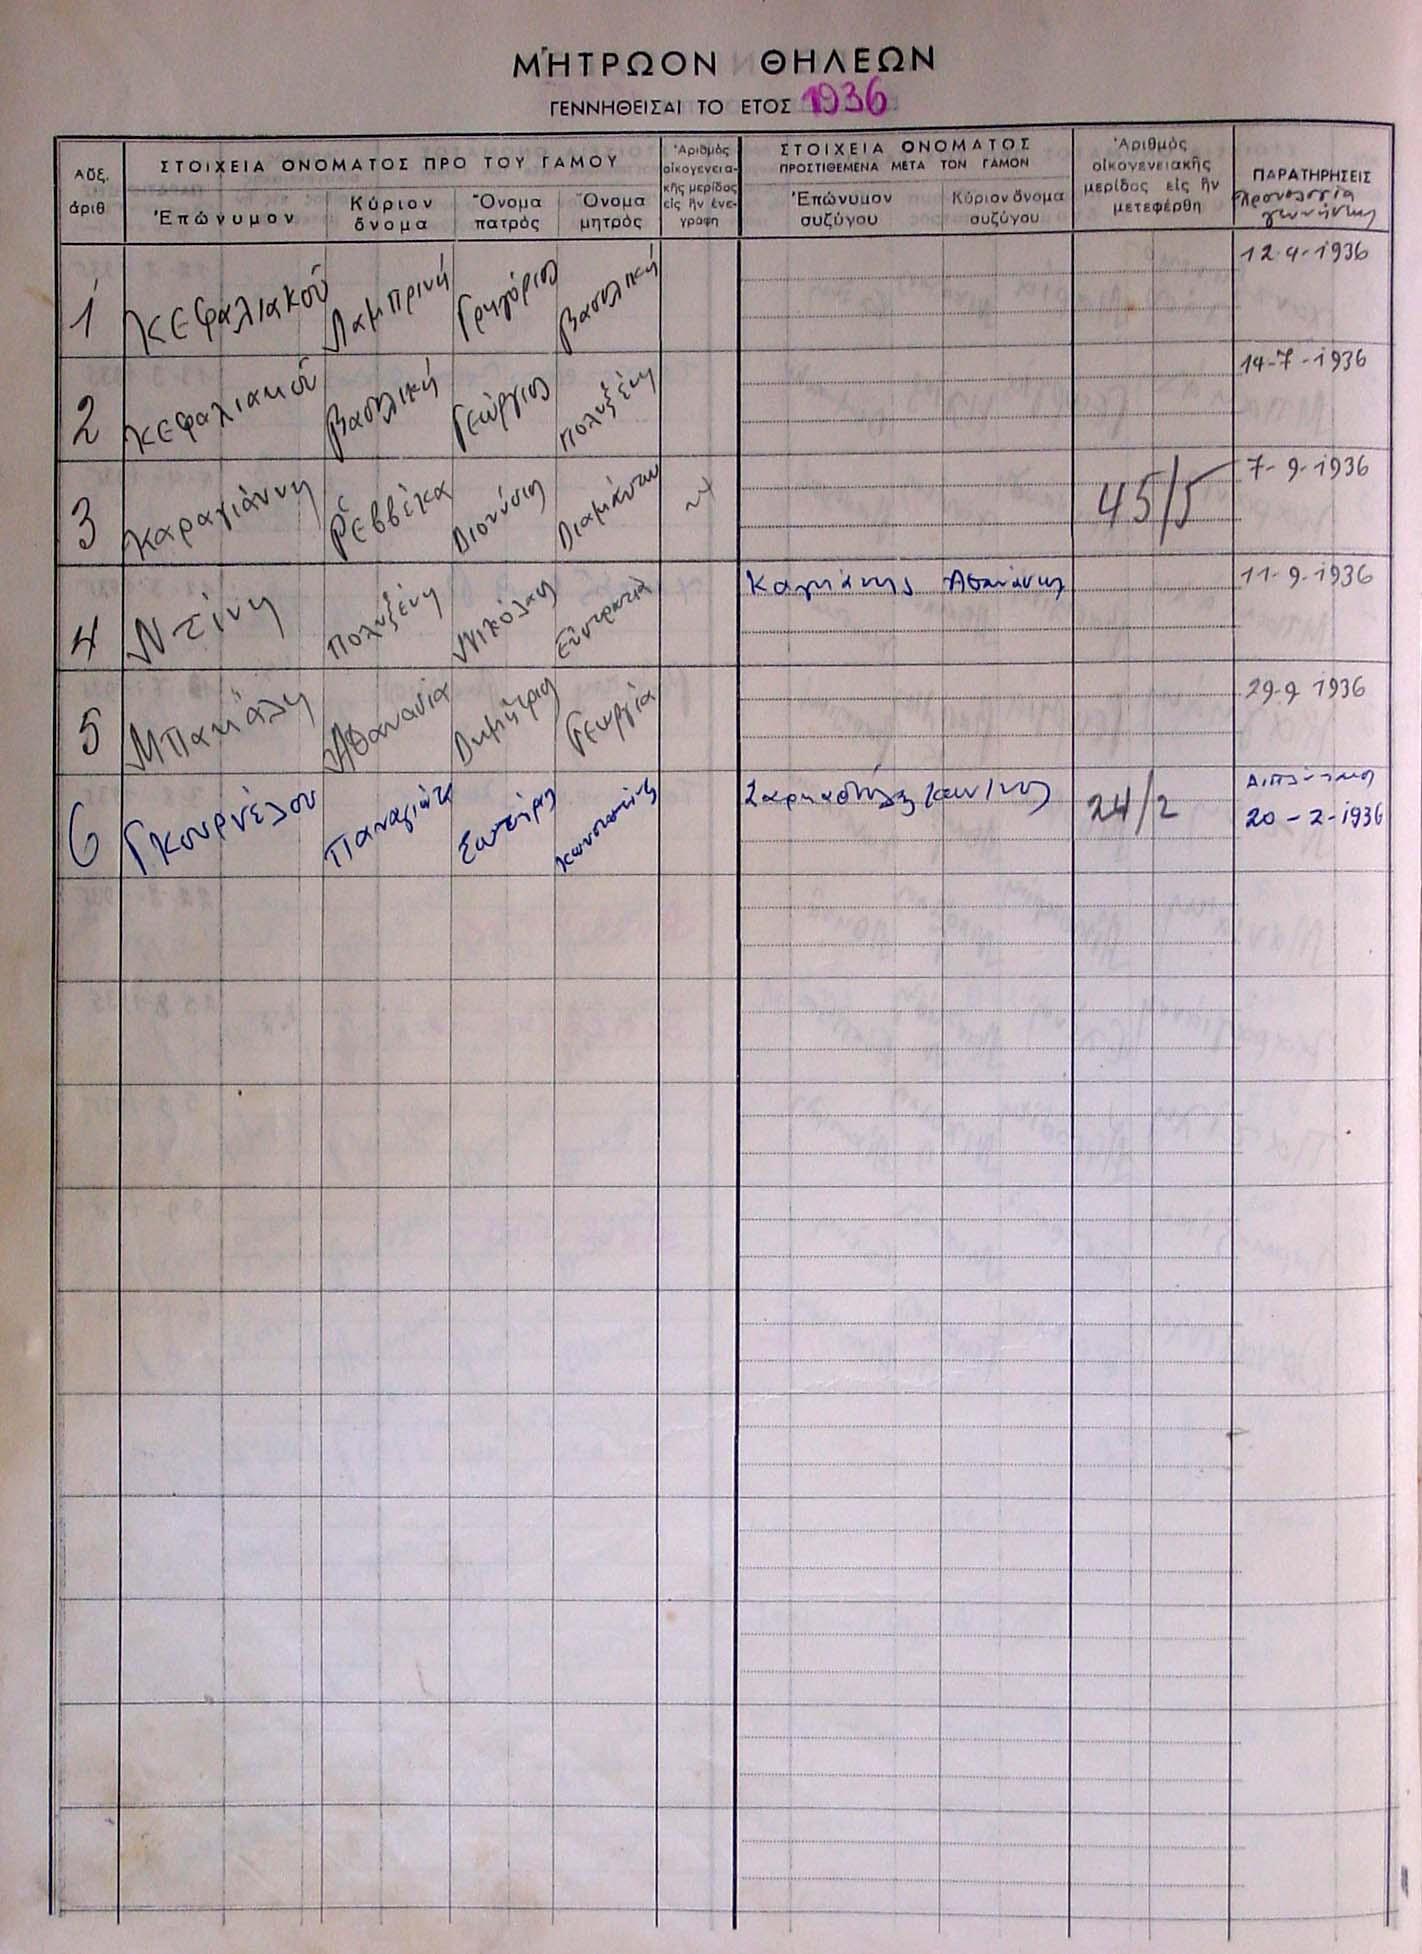 ΜΗΤΡΩΟΝ ΘΗΛΕΩΝ
ΓΕΝΝΗΘΕΙΣΑΙ ΤΟ ΕΤΟΣ 1936
Αὔξ. ἀριθ.
ΣΤΟΙΧΕΙΑ ΟΝΟΜΑΤΟΣ ΠΡΟ ΤΟΥ ΓΑΜΟΥ
Ἐπώνυμον
Κύριον ὄνομα
Ὄνομα πατρὸς
Ὄνομα μητρὸς
Ἀριθμὸς οἰκογενειακῆς μερίδος εἰς ἣν ἐνεγράφη
ΣΤΟΙΧΕΙΑ ΟΝΟΜΑΤΟΣ
ΠΡΟΣΤΙΘΕΜΕΝΑ ΜΕΤΑ ΤΟΝ ΓΑΜΟΝ
Ἐπώνυμον συζύγου
Κύριον ὄνομα συζύγου
Ἀριθμὸς οἰκογενειακῆς μερίδος εἰς ἣν μετεφέρθη
ΠΑΡΑΤΗΡΗΣΕΙΣ
χρονολογία γεννήσεως
1 Κεφαλιακοῦ Λαμπρινή Γρηγόριος Βασιλική 12-4-1936
2 Κεφαλιακοῦ Βασιλική Γεώργιος Πολυξένη 14-7-1936
3 Καραγιάννη Ρεββέκα Διονύσιος Διαμάντω 45/5 7-9-1936
4 Ντίνη Πολυξένη Νικόλαος Εὐστρατία Αθανάσιος 11-9-1936
5 Μπακιάλη Αθανασία Δημήτριος Γεωργία 29-9 1936
6 Γκουρνέλου Παναγιώτα Σωτήριος Κωνσταντίνα 24/2 20-2-1936